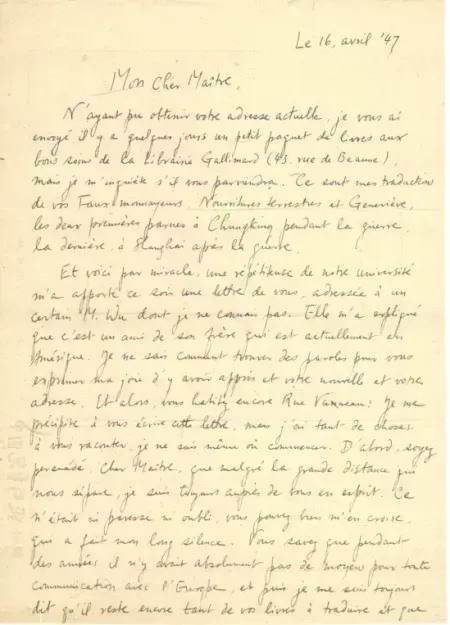 Le 16, avril '47
Mon cher Maître,
N'ayant pu obtenir votre adresse actuelle, je vous ai
envoyé il y a quelques jours un petit paquet de livres aux
bons soins de la Librairie Gallimard (43, rue de Beaune),
mais je m'inquiète s'il vous parviendra. Ce sont mes traductions
de vos Faux-monnayeurs, Nourritures terrestres et Geneviève,
les deux premières parues à Chungking pendant la guerre,
la dernière, à Shanghai après la guerre.
Et voici par miracle, une répétiteuse de notre université
m'a apporté ce soir une lettre de vous, adressée à un
certain M. Wu dont je ne connais pas. Elle m'a expliqué
que c'est un ami de son frère qui est actuellement en
Amérique. Je ne sais comment trouver des paroles pour vous
exprimer ma joie d'y avoir appris et votre nouvelle et votre
adresse. Et alors, vous habitez encore Rue Vanneau! Je me
précipite à vous écrire cette lettre, mais j'ai tant de choses
à vous raconter, je ne sais même où commencer. D'abord, soyez
persuadé, Cher Maître, que malgré la grande distance qui
nous sépare, je suis toujours auprès de vous en esprit. Ce
n'était ni paresse ni oubli, vous pouvez bien m'en croire,
qui a fait mon long silence. Vous savez que pendant
des années il n'y avait absolument pas de moyens pour toute
communication avec l'Europe, et puis je me suis toujours
dit qu'il reste encore tant de vos livres à traduire et que